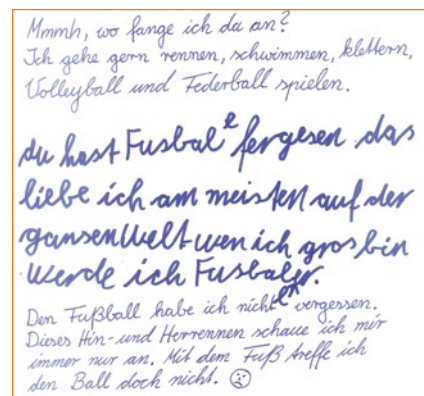 Mmmh, wo fange ich da an?
Ich gehe gern rennen, schwimmen, klettern,
Volleyball und Federball spielen.
du hast Fusbal fergesen das
liebe ich am meisten auf der
gansen Welt wen ich gros bin
werde ich Fusbaler.
Den Fußball habe ich nicht vergessen.
Dieses Hin- und Herrennen schaue ich mir
immer nur an. Mit dem Fuß treffe ich
den Ball doch nicht.